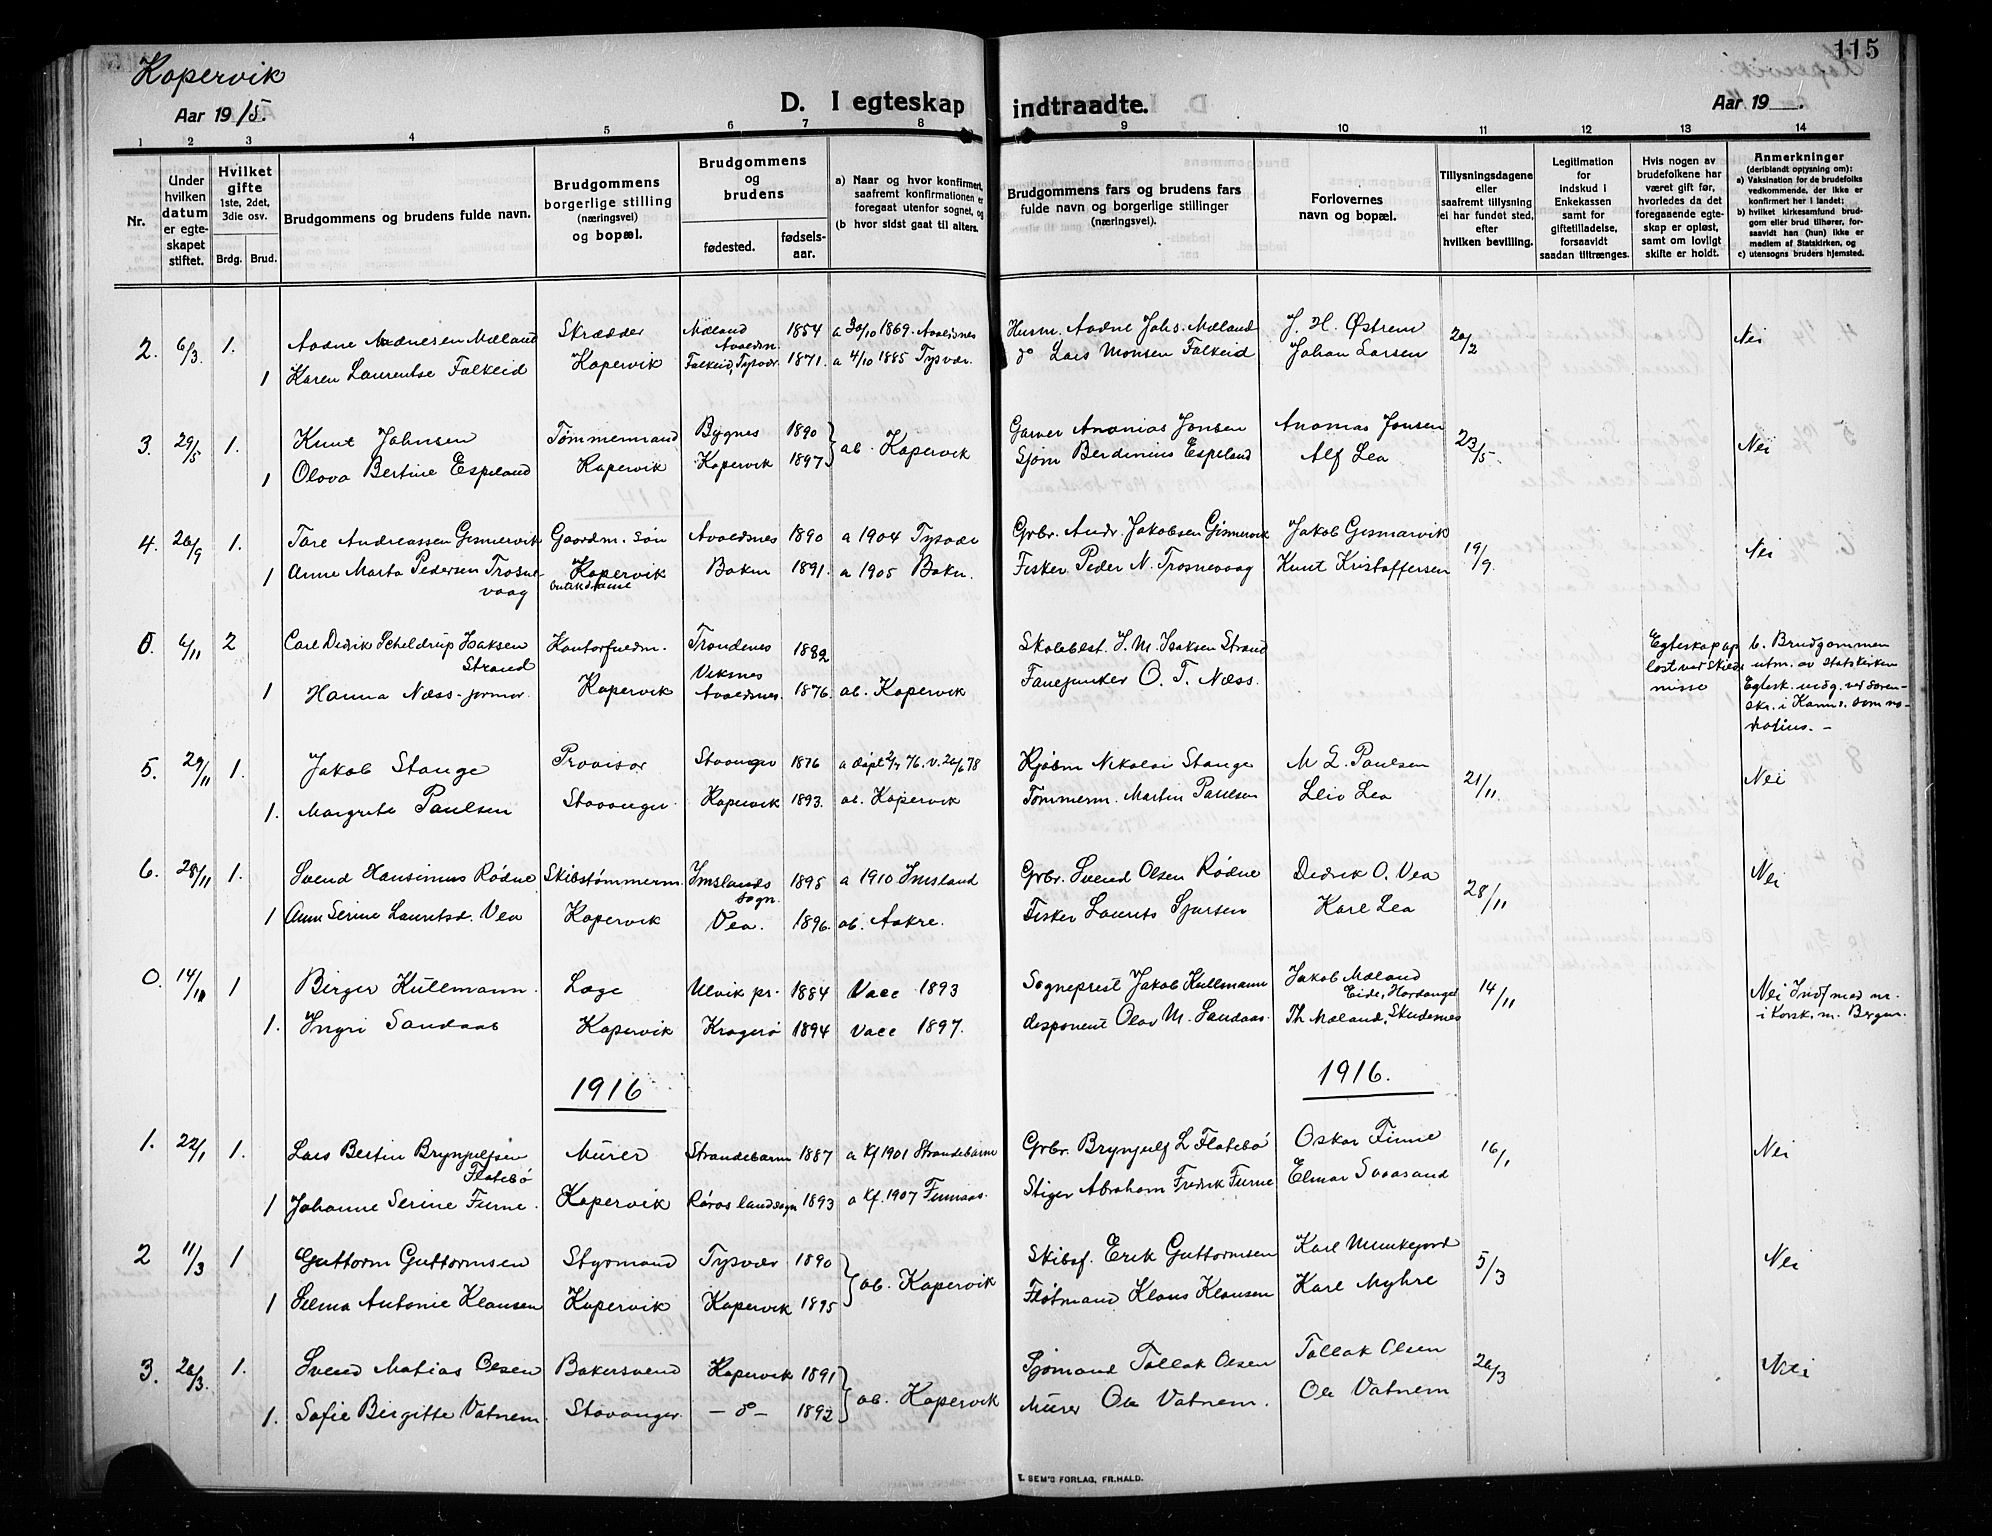 115
Kopervik
Aar 1915.
D. I egteskap indtraadte.
Aar 19
1 2 3 4 5 6 7 8 9 10 11 12 13 14
Nr.
Under hvilken datum er egteskapet stiftet.
Hvilket gifte 1ste, 2det, 3die osv.
Brdg. Brud.
Brudgommens og brudens fulde navn.
Brudgommens borgerlige stilling (næringsvei) og bopæl.
Brudgommens og brudens
fødested. fødselsaar.
a) Naar og hvor konfirmert, saafremt konfirmationen er foregaat utenfor sognet, og
(b hvor sidst gaat til alters.
Brudgommens fars og brudens fars fulde navn og borgerlige stillinger (næringsvei).
Forlovernes navn og bopæl.
Tillysningsdagene eller saafremt tillysning ei har fundet sted, efter hvilken bevilling.
Legitimation for indskud i Enkekassen samt for giftetilladelse, forsaavidt saadan tiltrænges.
Hvis nogen av brudefolkene har været gift før, hvorledes da det foregaaende egteskap er opløst, samt om lovligt skifte er holdt.
Anmerkninger (deriblandt oplysning om):
a) Vaksination for de brudefolks vedkommende, der ikke er konfirmert her i landet;
b) hvilket kirkesamfund brudgom eller brud tilhører, forsaavidt han (hun) ikke er medlem av Statskirken, og
c) utensogns bruders hjemsted.
2. 6/3 1. Aadne Aadnesen Mæland Skrædder Mæland Avaldsn. 1854 a 30/10 1869. Avaldsnes Husm. Aadne Johs. Mæland J. H. Østrem 20/2 Nei
1 Karen Laurentse Falkeid Kopervik Falkeid, Tysvær 1871. a 4/10 1885 Tysvær. do Lars Monsen Falkeid Johan Larsen
3. 29/5 1. Knut Johnsen Tømmermand Bygnes 1890 ab. Kopervik Garver Ananias Jonsen Ananias Jonsen 23/5. Nei
1 Olova Bertine Espeland Kopervik Kopervik 1897 Sjøm Berdinius Espeland Alf Lea
4. 26/9 1. Tore Andreassen Gismervik Gaardm. søn Avaldsnes 1890 a 1904 Tysvær Grbr. Andr. Jakobsen Gismervik Jakob Gismarvik 19/9 Nei
1 Anne Marta Pedersen Trosnevaag Kopervik Bokn 1891. a 1905 Bokn. Fisker Peder N. Trosnevaag Knut Kristoffersen
0. 6/11 2 Carl Didrik Scheldrup Isaksen Strand Kontorfuldm. Trondenes 1882 Skolebest. J. M. Isaksen Strand
Egteskap opløst ved Skilsmisse
b. Brudgommen utm. av Statskirken Egtesk. indg. ved Sorenskr. i Karms. som notarius. –
1 Hanna Næss-Jørmor. Kopervik Viknes Avaldsnes 1876. ab. Kopervik Fanejunker O. T. Næss.
5. 29/11 1. Jakob Stange Provisor Stavanger 1876 a døpt 2/7 76. v. 26/6 78 Kjøbm Nikolai Stange M L. Paulsen 21/11. Nei
1. Margrete Paulsen Stavanger. Kopervik 1893. ab. Kopervik Tømmerm. Martin Paulsen Leiv Lea
6. 28/11 1. Svend Hansinius Rødne Skibstømmerm. Imslands sogn. 1895 a 1910 Imsland Grbr. Svend Olsen Rødne Didrik O. Vea 28/11 Nei
1 Anne Serine Lauritsd. Vea Kopervik Vea. 1896. ab. Aakre. Fisker Laurits Sjursen Karl Lea
0. 14/11 1 Birger Kullmann. Læge Ulvik pr. 1884 Vacc 1893 Sogneprest Jakob Kullmann Jakob Mæland Eide, Hardanger 14/11 Nei Indf. med nr. i Korsk. m. Bergen.
1. Ingri Sandaas Kopervik Kragerø 1894 Vacc 1897. disponent Olav M. Sandaas. Th Mæland, Skudenes
1916 1916.
1. 22/1 1. Lars Bertin Brynjulfsen Flatebø Murer Strandebarm 1887 a Kf 1901 Strandebarm Grbr. Brynjulf L Flatebø Oskar Finne 16/1 Nei
1 Johanne Serine Finne. Kopervik Røros landsogn 1893 a Kf. 1907 Finnaas. Stiger Abraham Fredrik Finne Elmar Svaasand
2 11/3 1 Guttorm Guttormsen Styrmand Tysvær 1890 ab. Kopervik Skibsf. Erik Guttormsen Karl Munkejord 5/3 Nei
1 Selma Antonie Klausen Kopervik Kopervik 1895 Fløtmand Klaus Klausen Karl Myhre
3. 26/3. 1. Svend Matias Olsen Bakersvend Kopervik 1891 ab. Kopervik Sjømand Tollak Olsen Tollak Olsen 26/3 Nei
1. Sofie Birgitte Vatnem. Stavanger. – do – 1892 Murer Ole Vatnem. Ole Vatnem
E. SEM'S FORLAG, FR.HALD.